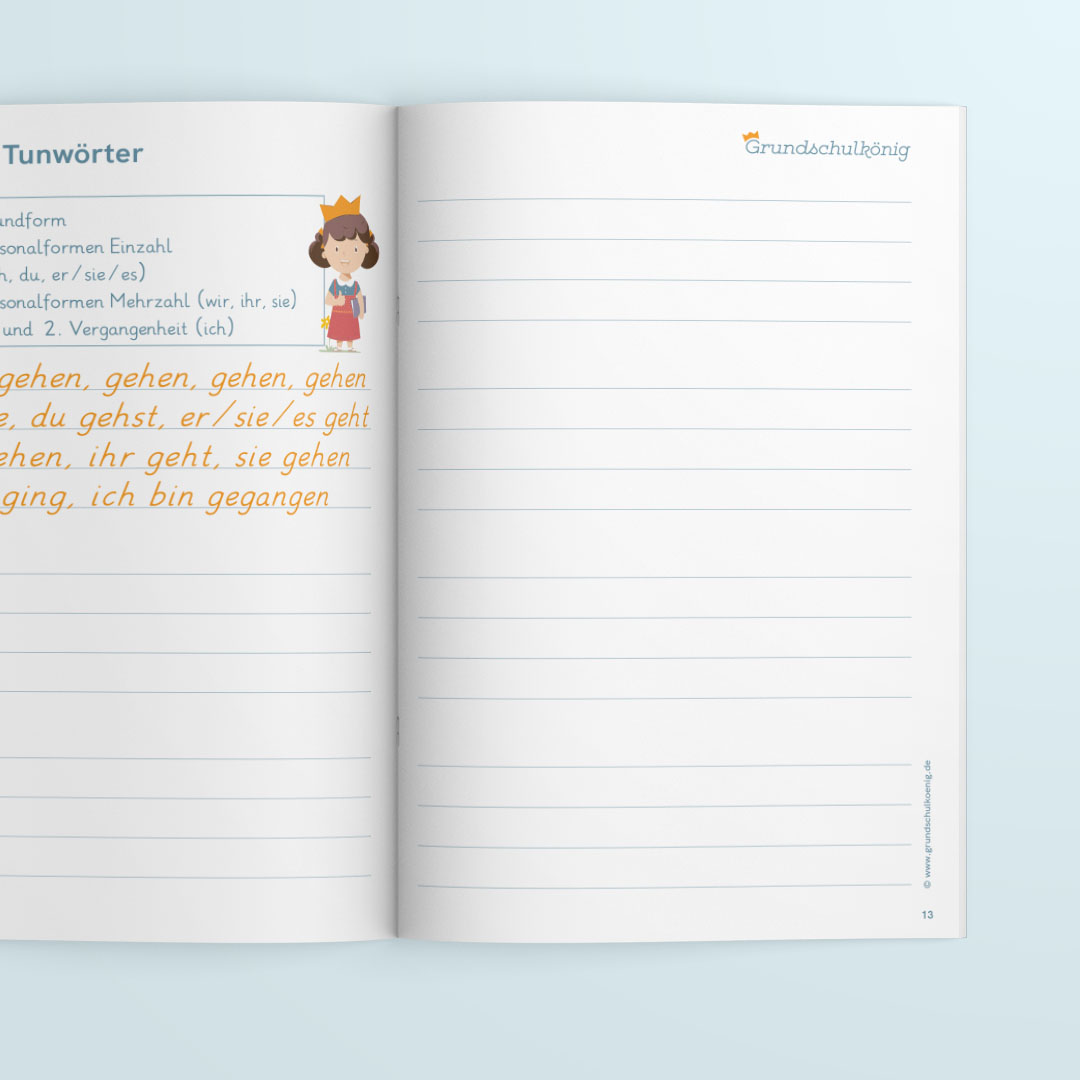 Tunwörter
undform
sonalformen Einzahl
h, du, er/sie/es)
sonalformen Mehrzahl (wir, ihr, sie)
und 2. Vergangenheit (ich)
gehen, gehen, gehen, gehen
e, du gehst, er/sie/es geht
ehen, ihr geht, sie gehen
ging, ich bin gegangen
Grundschulkönig
© www.grundschulkoenig.de
13